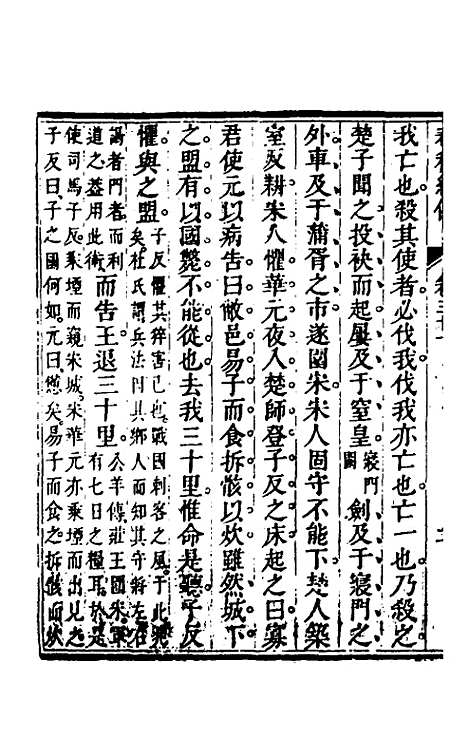 我亡也殺其使者必伐我伐我亦亡也亡一也乃殺之
楚子聞之投袂而起屨及于窒皇寢門闕劍及于寢門之
外車及于蒲胥之市遂圍宋宋人固守不能下楚人築
室反耕宋人懼華元夜入楚師登子反之床起之曰寡
君使元以病告曰敝邑易子而食拆骸以炊雖然城下
之盟有以國斃不能從也去我三十里惟命是聽子反
懼與之盟子反懼其猝害己也戰國刺客之風于此
矣杜氏謂兵法因其鄉人而知其守將左右
謁者門者而利
道之蓋用此術而告王退三十里公羊傳莊王圍宋軍
有七日之糧耳於是
使司馬子反乘堙而窺宋城宋華元亦乘堙而出見之
子反曰子之國何如元曰憊矣易子而食之拆骸而炊